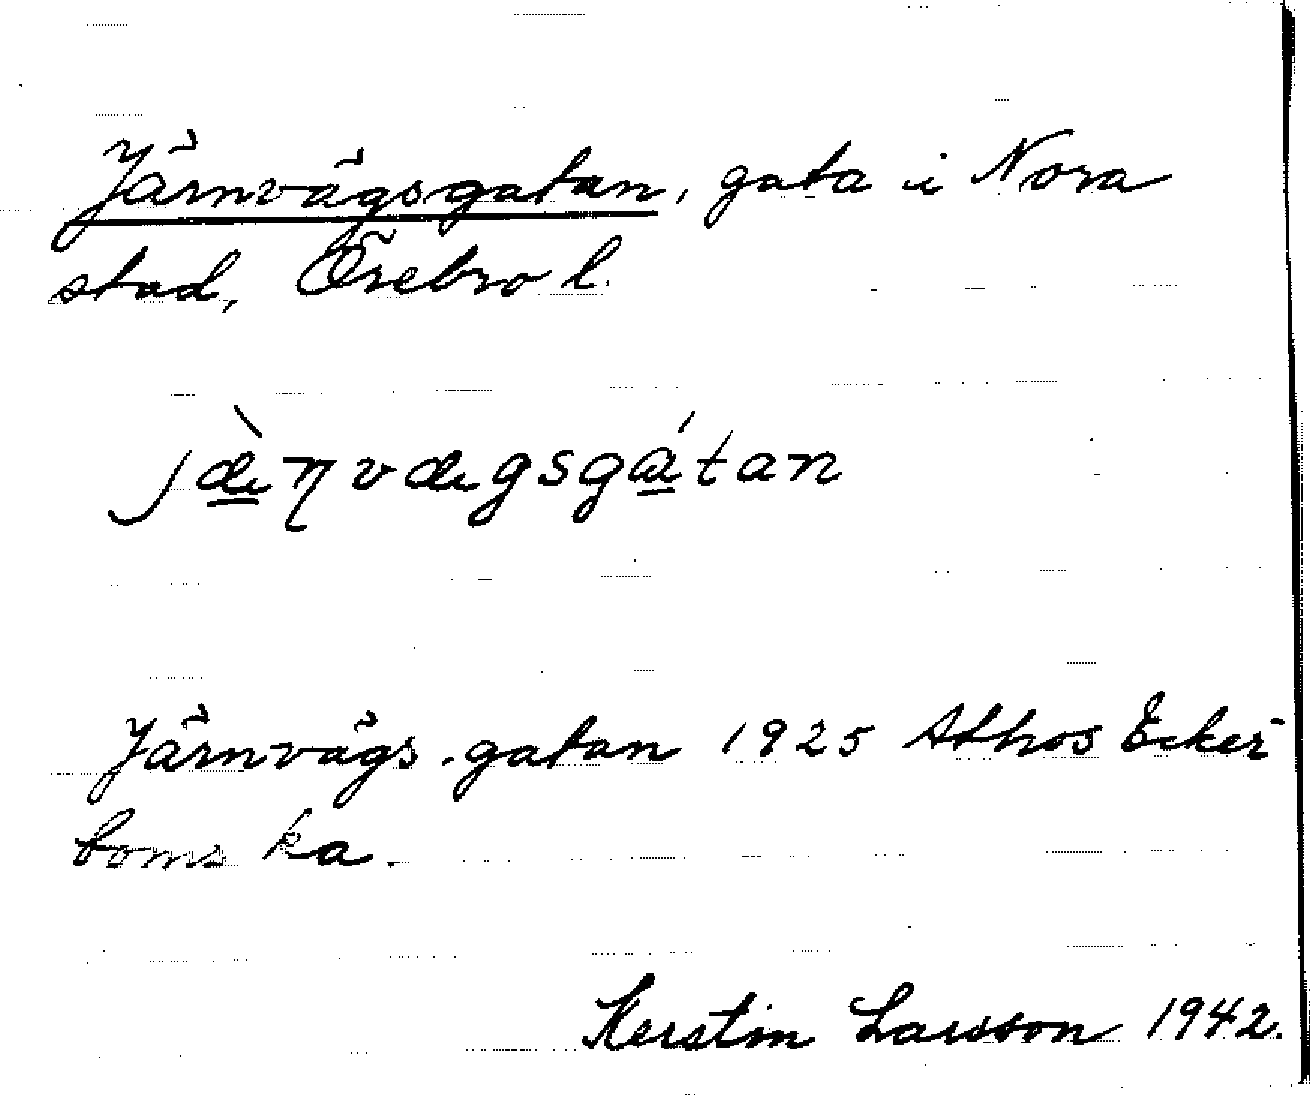 Järnvägsgatan, gata i Nora
stad, Örebro l.
jæ̀ɳvægsgátan
Järnvägs-gatan 1925 Athos Ecker-
boms ka.
Kerstin Larsson 1942.